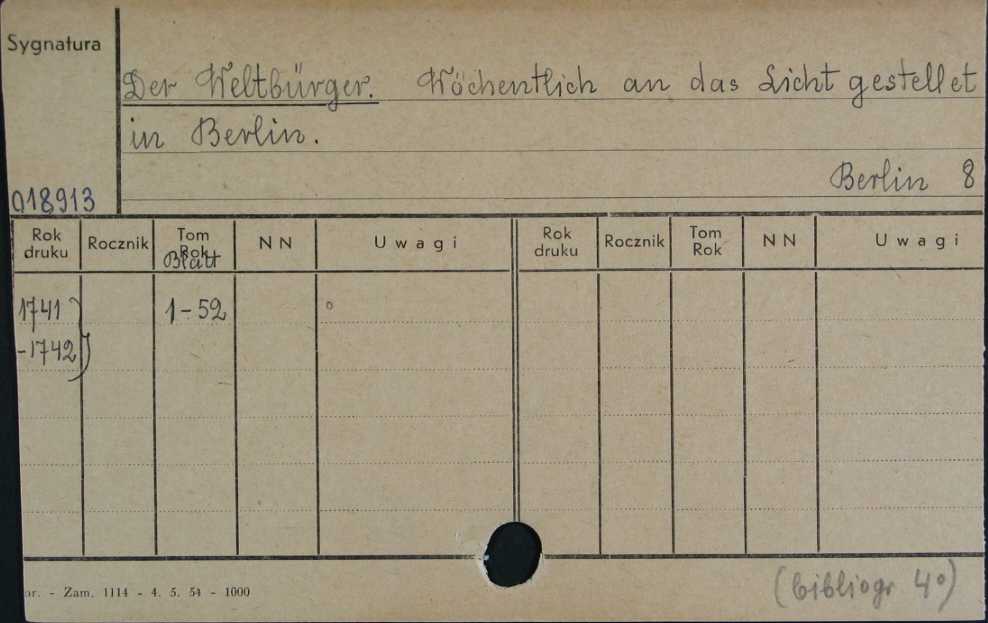 Sygnatura
Der Weltbürger. Wöchentlich an das Licht gestellet
in Berlin.
Berlin 8
018913
Rok druku Rocznik Tom Rok Blatt NN Uwagi Rok druku Rocznik Tom Rok NN Uwagi
1741 1-52
-1742
(bibliogr 4°)
nr. - Zam. 1114 - 4. 5. 54 - 1000